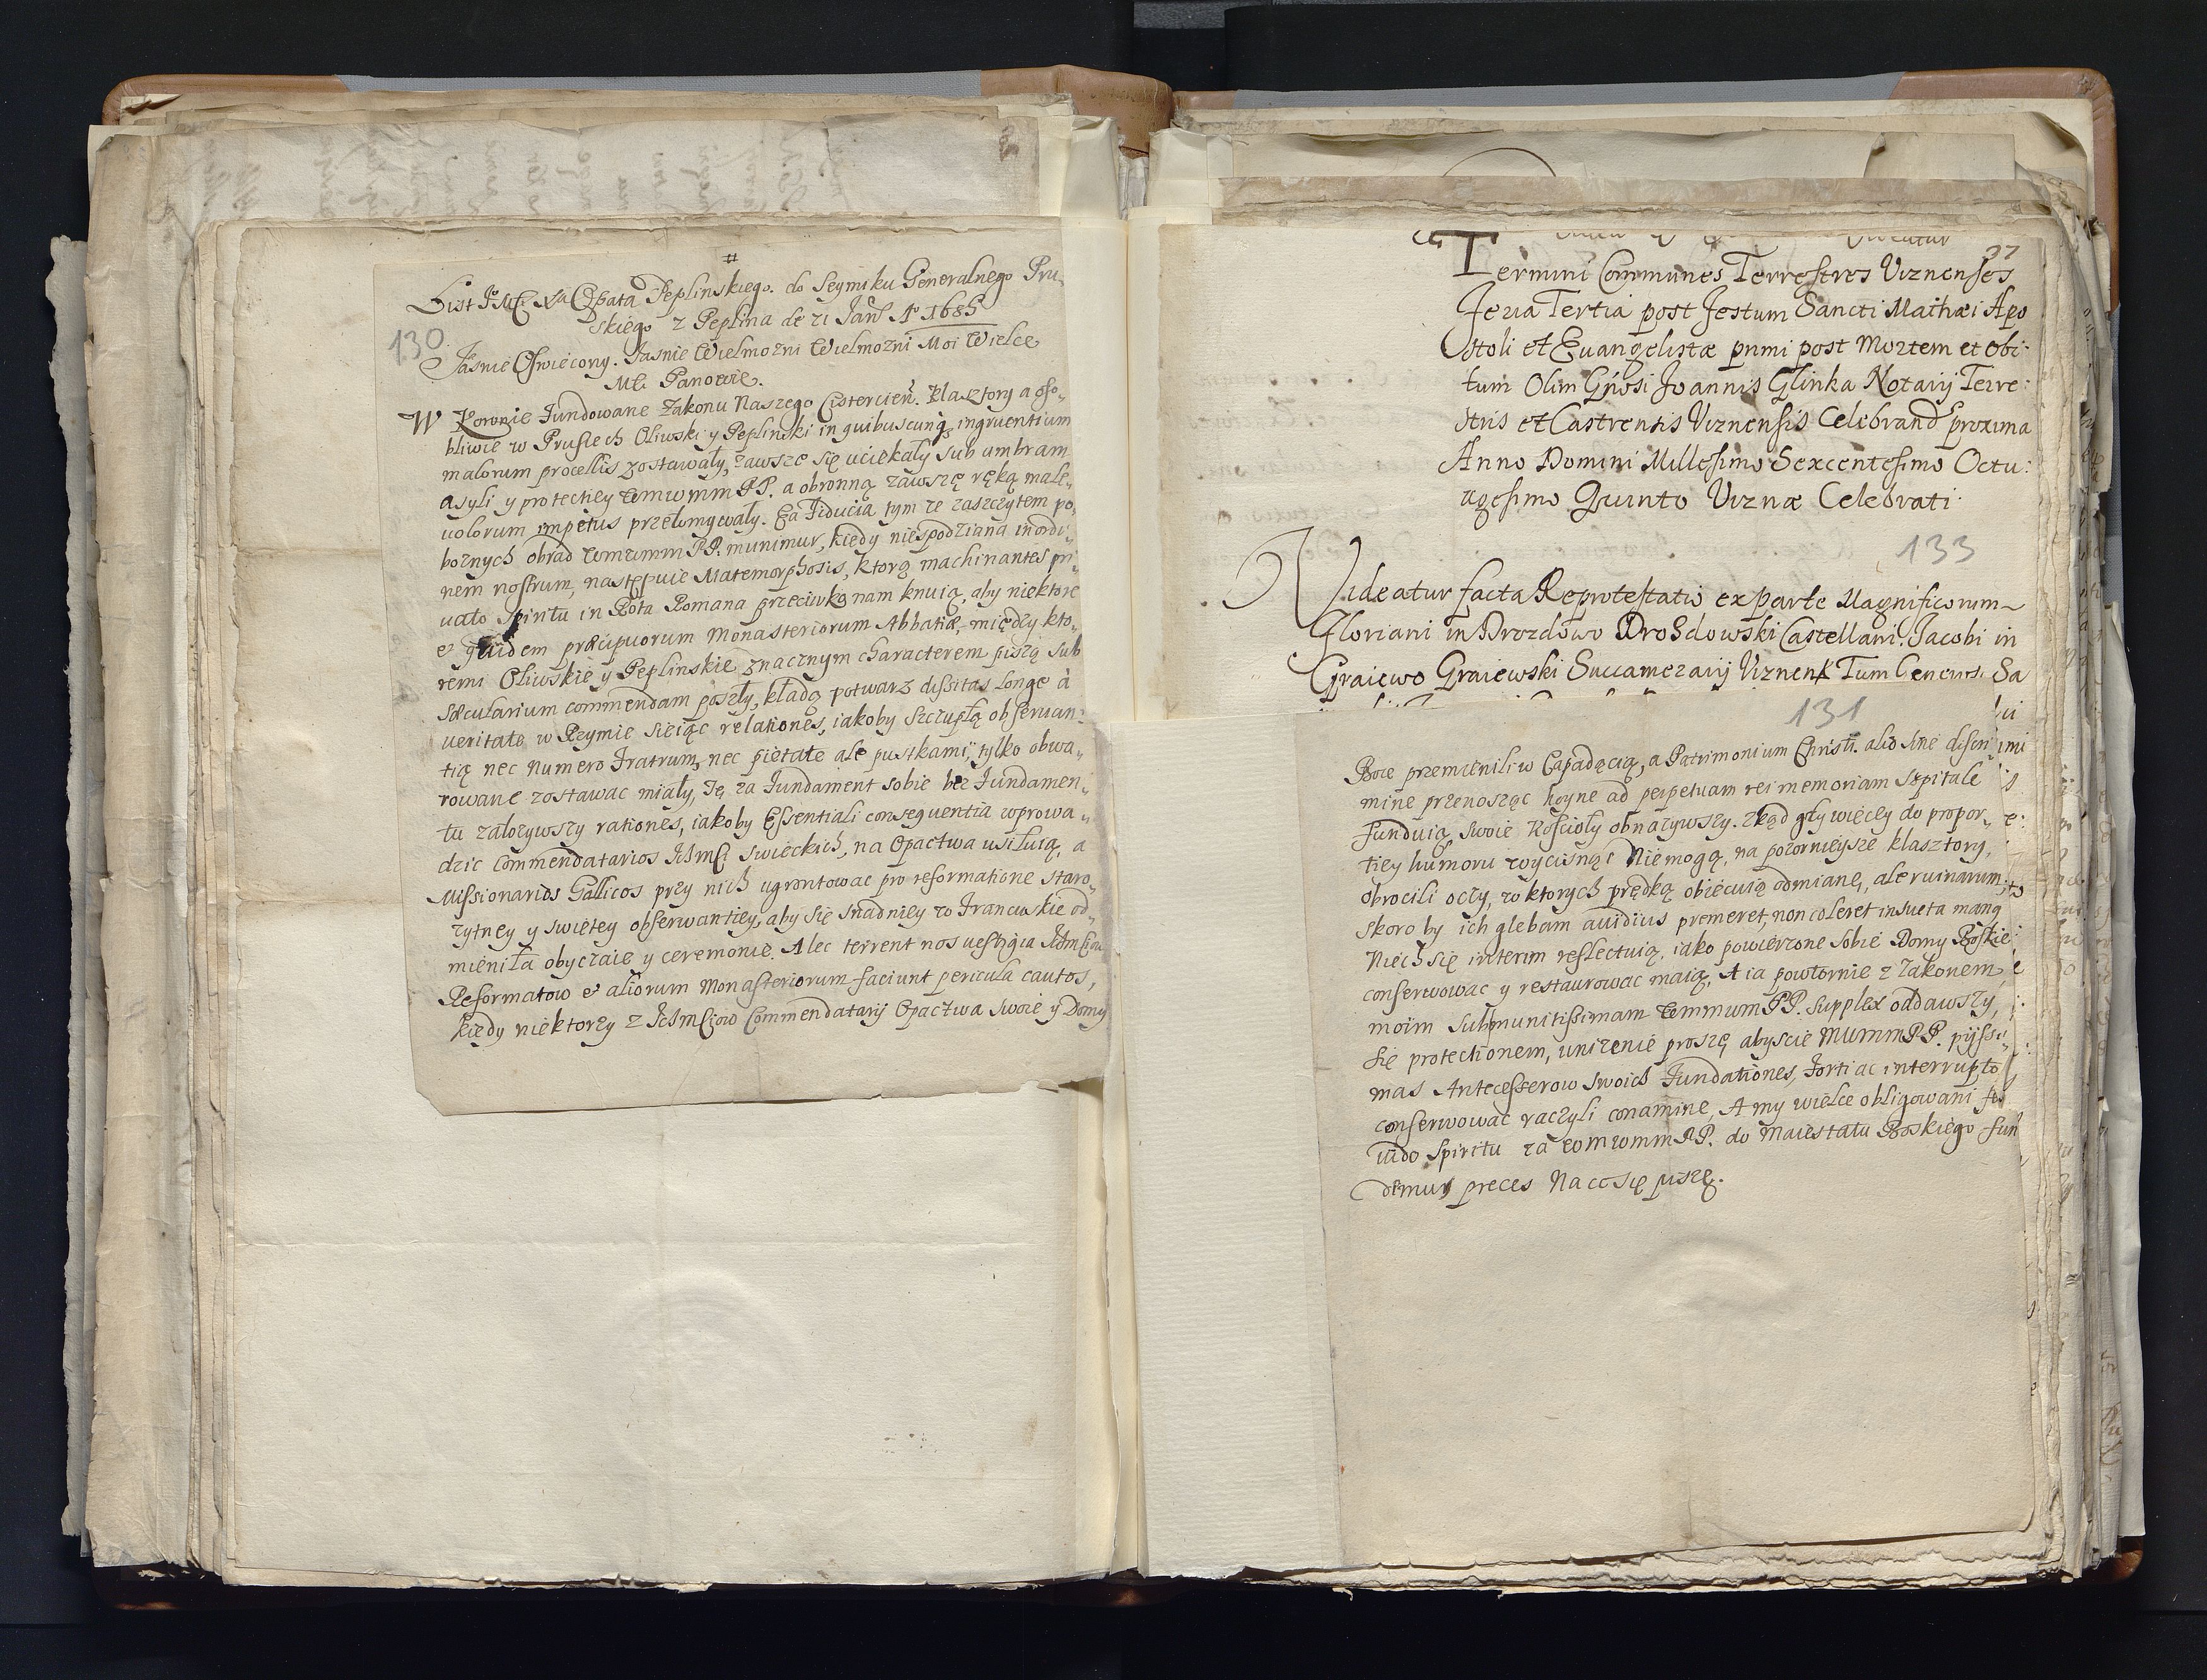 #
List JMC Xa Opata Peplinskiego. do Seymiku Generalnego Pru-
skiego z Peplina de 21 Jan. Ao 1685
130
Jasnie Oswiecony. Jasnie Wielmozni Wielmozni Moi Wielce
Mći Panowie.
W Koronie Fundowane Zakonu Naszego Cistercien. Klasztory a oso-
bliwie w Prusiech Oliwski y Peplinski in quibuscunq ingruentium
malorum procellis zostawały, zawsze się uciekały sub umbram
asyli y protectiey WMMM PP. a obronną zawszę ręką male-
uolorum impetus przełomywały. Ea Fiducia tym ze zaszczytem po-
boznych obrad WMMM PP. munimur, kiedy niespodziana in ordi-
nem nostrum, następuie Matemorphosis, ktorą machinantes pri-
uato spiritu in Rota Romana przeciwko nam knuią, aby niektore
et quidem præcipuorum Monasteriorum Abbatiæ, między kto-
remi Oliwskie y Peplinskie znacznym characterem piszą sub
sæcularium commendam poszły, kładą potwarz dissitas longe à
ueritate w Rzymie sieiąc relationes, iakoby szczupłą obseruan-
tią nec numero Fratrum, nec pietate ale pustkami, tylko obwa-
rowane zostawac miały, Tę za Fundament sobie bez Fundamen-
tu załozywszy rationes, iakoby Essentiali consequentia wprowa-
dzic Commendatarios Ichmci swieckich, na Opactwa usiłuią, a
Missionarios Gallicos przy nich ugrontowac pro reformatione staro-
zytney y swiętey obserwantiey, aby się snadniey w Francuskie od-
mieniła obyczaie y ceremonie. Alec terrent nos uestigia
Reformatow et aliorum Monasteriorum faciunt pericula cautos,
kiedy niektorzy z Ichmciow Commendatarij Opactwa swoie y Domy
37
Termini Communes Terrestres Viznenses
Feria Tertia post Festum Sancti Mathæi Apo
stoli et Euangelistæ primi post Mortem et obi:
tum Olim Gnosi Joannis Glinka Notarij Terre:
stris et Castrensis Viznensis Celebrand proxima
Anno Domini Millesimo Sexcentesimo Octu:
agesimo Quinto Viznæ Celebrati
133
Videatur facta Reprotestatio ex parte Magnificorum
Floriani in Drozdowo Drosdowski Castellani. Jacobi in
Graiewo Graiewski Succamerarij Viznen Tum Sa
131
Boze przemienili w Capadocią, a Patrimonium Christi. alio sine
mine przenosząc hoyne ad perpetuam rei memoriam szpitale
funduią swoie Kościoły obnazywszy. Zkąd gdy więcey do propor-
tiey humoru wycisnąć Niemogą, na pozornieysze klasztory,
obrocili oczy, w ktorych prędką obiecuią odmianę, ale ruinarum
skoro by ich glebam auidius premeret, non coleret insueta manq
Niech się interim reflectuią, iako powierzone sobie Domy Boskie
conserwowac y restaurowac maią, A ia powtornie z Zakonem
moim sub munitissimam WMMM PP. supplex oddawszy,
się protectionem, unizenie proszę abyscie MWMM PP. pijssi-
mas Antecesserow swoich Fundationes, Forti ac interrupto
conserwować raczyli conamine, A my wielce obligowani
uido Spiritu za WMMM PP. do Maiestatu Boskiego fun
demus preces Na co się piszę.